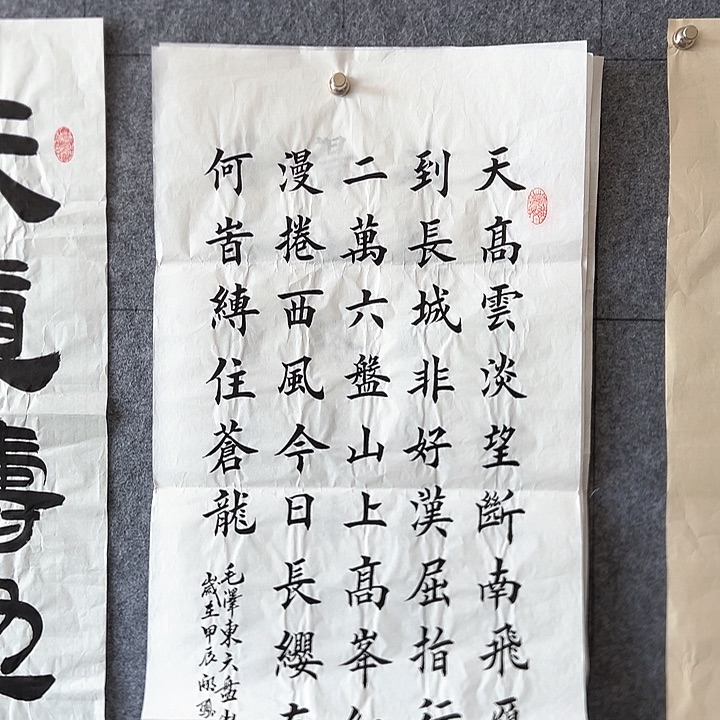 天髙雲淡望斷南飛
到長城非好漢屈指行
二萬六盤山上髙峯
漫捲西風今日長纓在
何旹縛住蒼龍
毛澤東六盤山
歲在甲辰